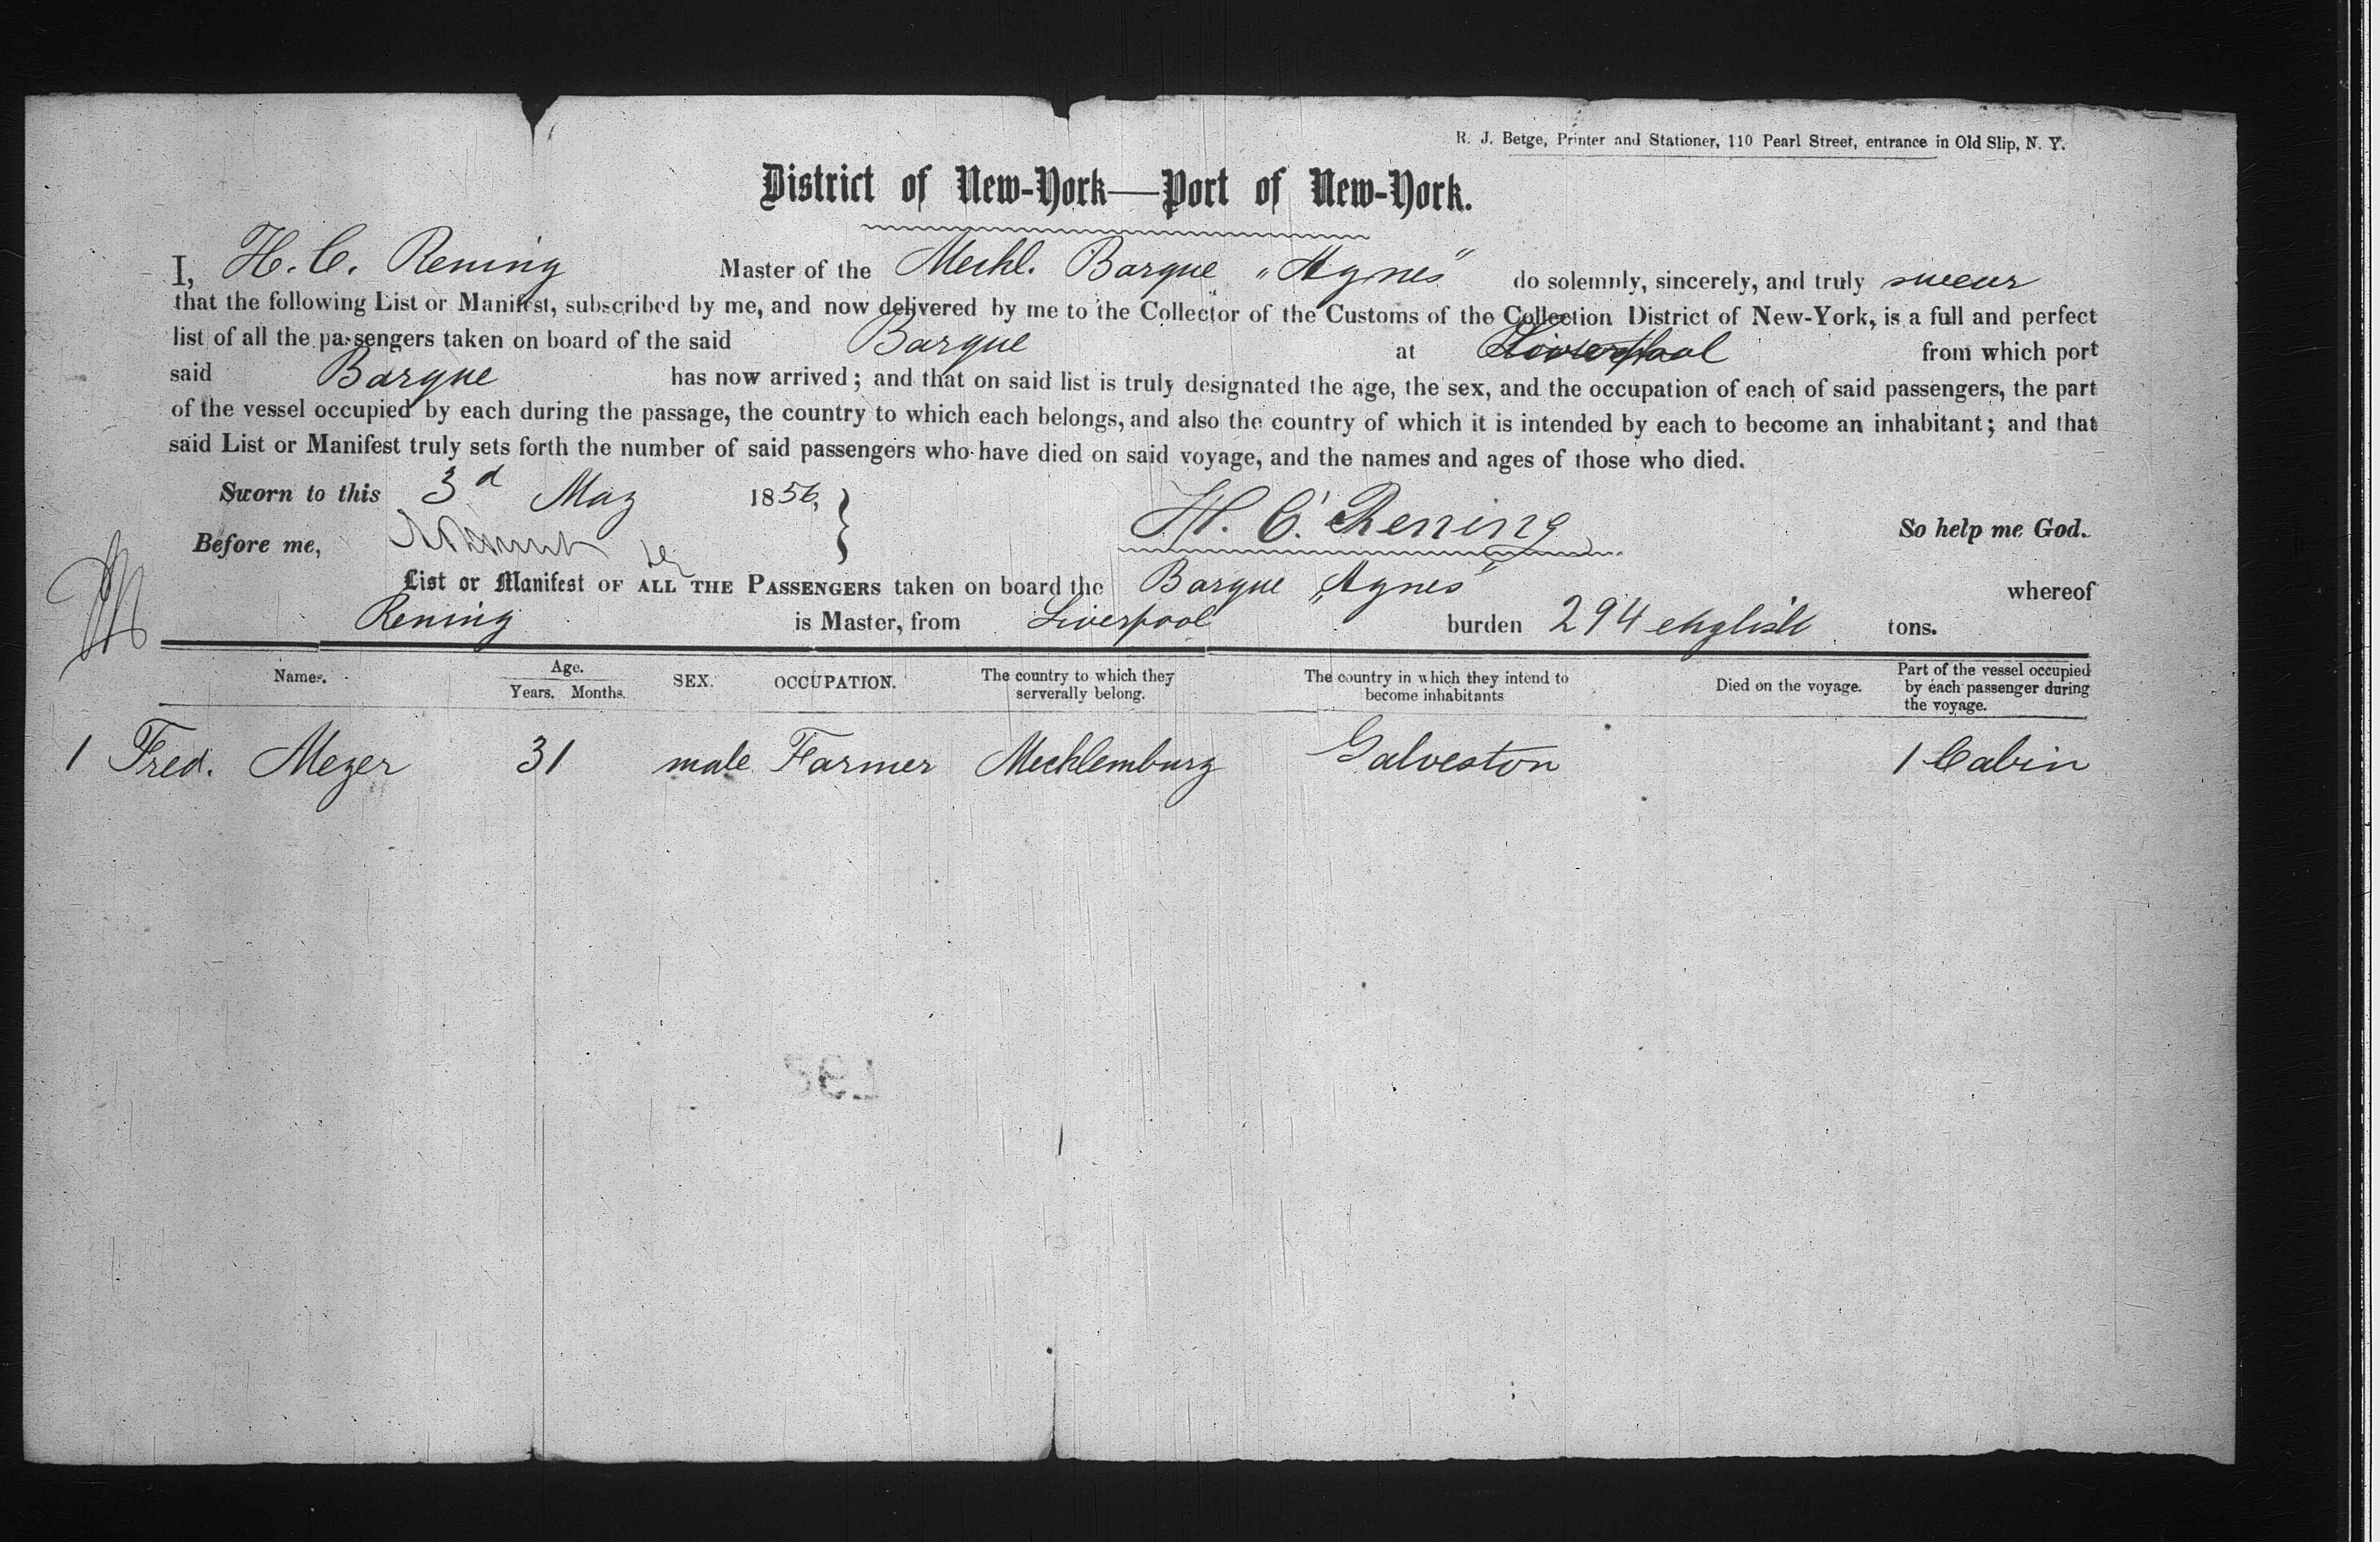 R. J. Betge, Printer and Stationer, 110 Pearl Street, entrance in Old Slip, N. Y.
District of New-York—Port of New-York.
I, H. C. Rening Master of the Meckl. Barque „Agnes" do solemnly, sincerely, and truly swear
that the following List or Manifest, subscribed by me, and now delivered by me to the Collector of the Customs of the Collection District of New-York, is a full and perfect
list of all the passengers taken on board of the said Barque at Liverpool from which port
said Barque has now arrived; and that on said list is truly designated the age, the sex, and the occupation of each of said passengers, the part
of the vessel occupied by each during the passage, the country to which each belongs, and also the country of which it is intended by each to become an inhabitant; and that
said List or Manifest truly sets forth the number of said passengers who have died on said voyage, and the names and ages of those who died.
Sworn to this 3d May 1856,
H. C. Rening So help me God.
Before me,
List or Manifest OF ALL THE PASSENGERS taken on board the Barque „Agnes" whereof
Rening is Master, from Liverpool burden 294 english tons.
Names. Age. Years. Months. SEX. OCCUPATION. The country to which they serverally belong. The country in which they intend to become inhabitants Died on the voyage. Part of the vessel occupied by each passenger during the voyage.
1 Fred. Meyer 31 male Farmer Mecklemburg Galveston 1 Cabin